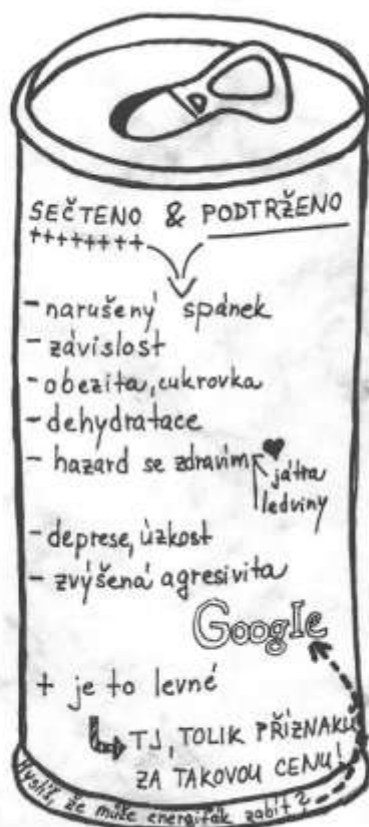 SEČTENO & PODTRŽENO
++++++++
- narušený spánek
- závislost
- obezita, cukrovka
- dehydratace
- hazard se zdravím ♥
játra
ledviny
- deprese, úzkost
- zvýšená agresivita
Google
+ je to levné
TJ, TOLIK PŘÍZNAKŮ
ZA TAKOVOU CENU!
Myslíš, že může energiťák zabít?